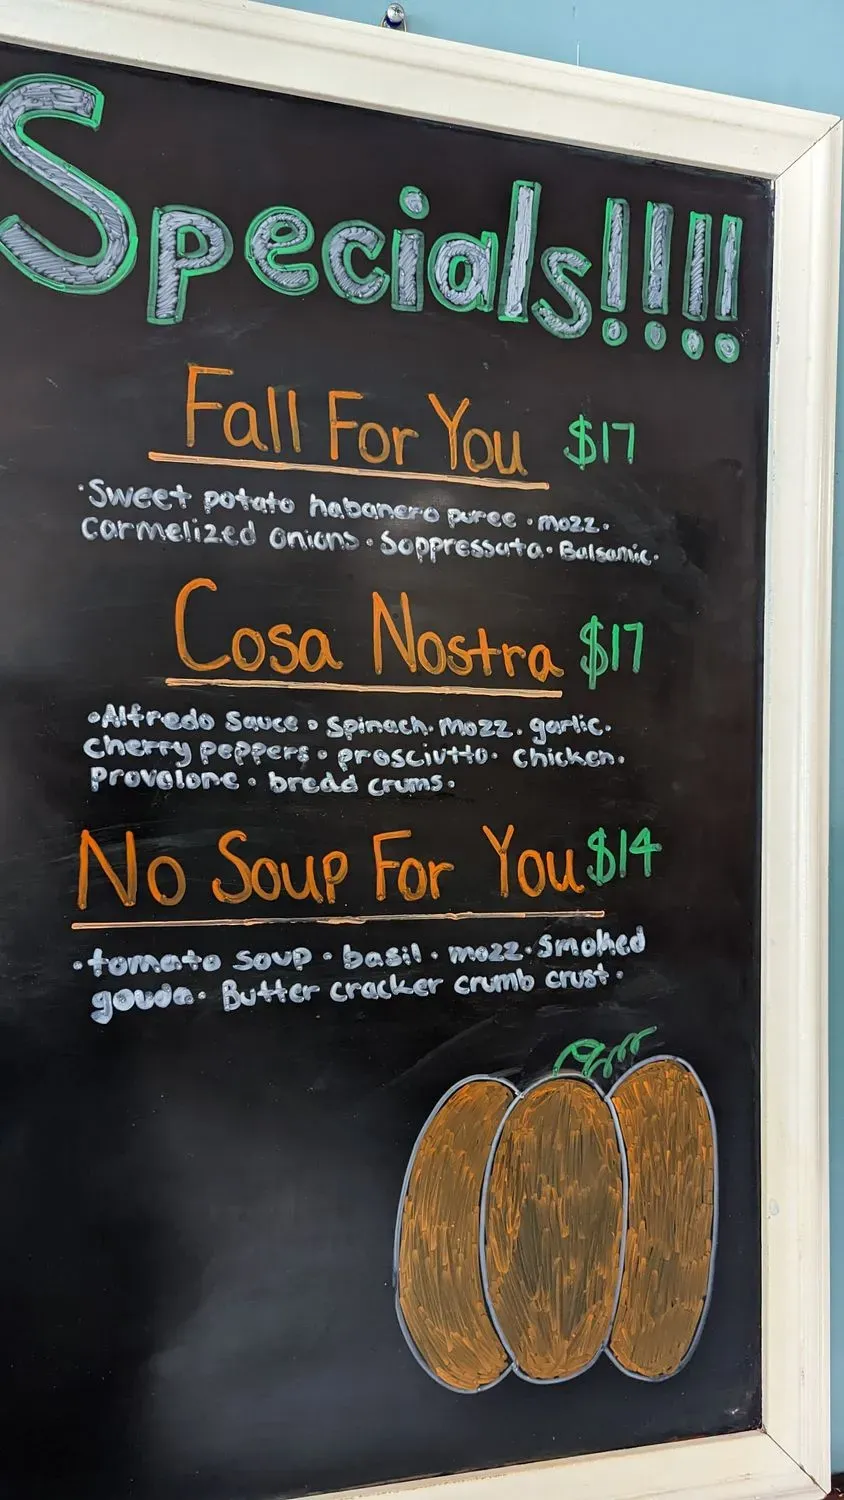 Specials!!!!
Fall For You $17
·Sweet potato habanero puree · mozz·
carmelized onions · Soppressata · Balsamic·
Cosa Nostra $17
·Alfredo Sauce · Spinach · mozz · garlic·
cherry peppers · prosciutto · chicken·
provolone · bread crums·
No Soup For You $14
·tomato soup · basil · mozz · smoked
gouda · Butter cracker crumb crust·